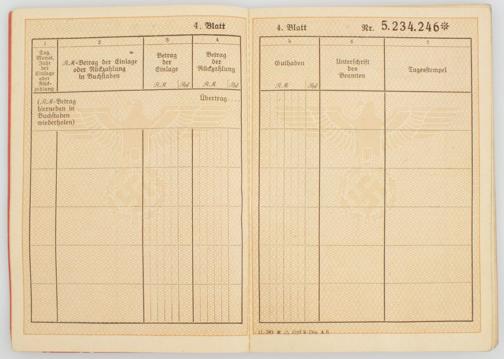 4. Blatt
1
2
3
4
Tag,
Monat,
Jahr
der
Einlage
oder
Rück-
zahlung
RM-Betrag der Einlage
oder Rückzahlung
in Buchstaben
Betrag
der
Einlage
RM
Rpf
Betrag
der
Rückzahlung
RM
Rpf
(RM-Betrag
hierneben in
Buchstaben
wiederholen)
Übertrag
4. Blatt
Nr. 5.234.246*
5
6
7
Guthaben
RM
Rpf
Unterschrift
des
Beamten
Tagesstempel